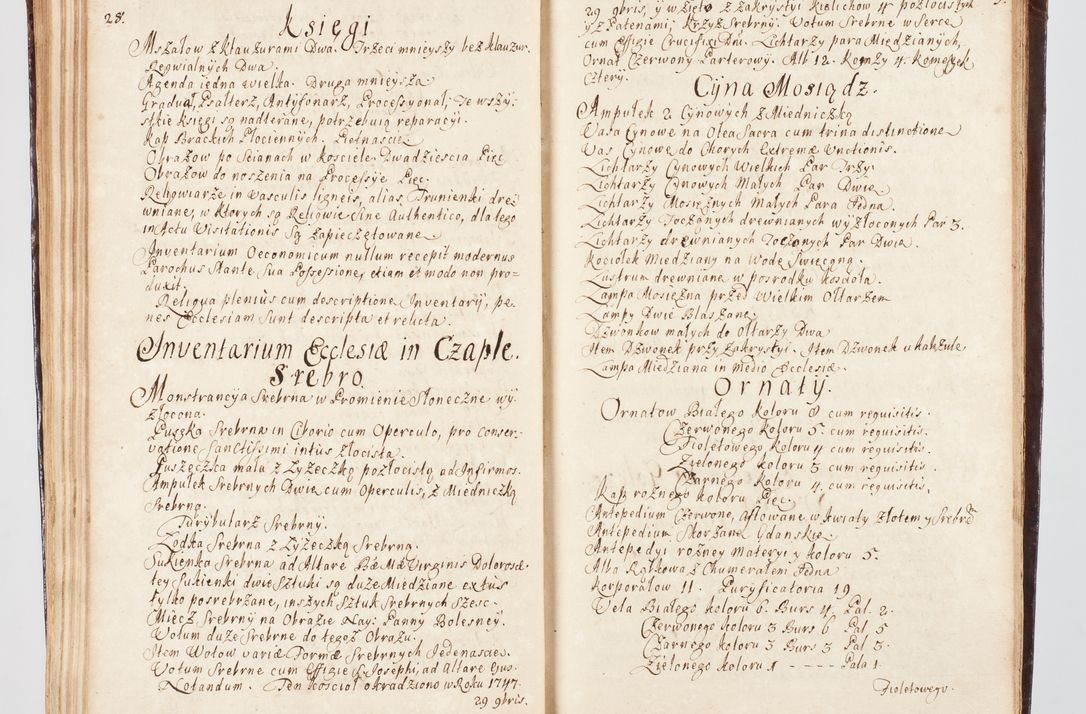 28.
Księgi
Mszałow z klauzurami Dwa. Trzeci mnieyszy bez klauzur.
Reqwialnych Dwa.
Agenda iedna wielka. Druga mnieysza.
Graduał, Psałterz, Antyfonarz, Processyonał, Te wszy:
stkie księgi są nadterane, potrzebuią reparacyi.
Kap Brackich Płociennych. Piętnascie.
Obrazow po Scianach w kosciele Dwadziescia Pięc
Obrazow do noszenia na Processye Pięc.
Reliqwiarze in vasculis ligneis, alias Trunienki drei
wniane, w ktorych są Reliqwie Sine Authentico, dla tego
in Actu Visitationis Są zapieczętowane
Inventarium Oeconomicum nullum recepit modernus
Parochus Stante Sua Possessione, etiam et modo non pro=
duxit.
Reliqua pleniùs cum descriptione Inventarij, pe,
nes Ecclesiam Sunt descripta et relicta.
Inventarium Ecclesiæ in Czaple.
Srebro
Monstrancya Srebrna w Promienie Słoneczne wy.
złocona.
Puszka Srebrna in Ciborio cum Operculo, pro conser-
vatione Sanctissimi intùs złocista
Puszeczka mała z Łyżeczką pozłocistą ad Infirmos.
Ampułek Srebrnych Dwie cum Operculis, z Miedniczką
Srebrną.
Turybularz Srebrny.
Łodka Srebrna z Łyżeczką Srebrną.
Sukienka Srebrna ad Altare Bæ Mæ Virginis Dolorosæ.
tey Sukienki dwie Sztuki są duże Miedziane extùs
tylko posrebrzane, inszych Sztuk Srebrnych Szesc.
Miecz Srebrny na Obrazie Nay: Panny Bolesney.
Wotum duże Srebrne do tegoż Obrazu.
Item Wotow variæ Formæ Srebrnych Jedenascie.
Votum Srebrne cum Effigie S. Josephi, ad Altare Ejus.
Notandum. Ten kosciół okradziono w Roku 1747.
29 9bris.
29 9bris, y wzięto z zakrystyi kielichow 4 pozłocistych
y z Patenami, krzyż Srebrny. Votum Srebrne w Serce
cum Effigie Crucifixi Dni. Lichtarzy para Miedzianych,
Ornat Czerwony Parterowy. Alb 12. Komży 4. Komeszek
Cztery.
Cyna Mosiądz.
Ampułek 2 Cynowych z Miedniczką
Vasa Cynowe na Olea Sacra cum trina distinctione
Vas Cynowe do Chorych Extremæ Unctionis.
Lichtarzy Cynowych Wielkich Par Trzy
Lichtarzy Cynowych Małych Par Dwie
Lichtarzy Mosiężnych Małych Para Jedna.
Lichtarzy Toczonych drewnianych wyzłoconych Par 3.
Lichtarzy drewnianych Toczonych Par Dwie.
kociołek Miedziany na Wodę Swięconą.
Lustrum drewniane w posrodku kosciola.
Lampa Mosiężna przed Wielkim Ołtarzem
Lampy Dwie Blaszane
Dzwonkow małych do Ołtarzy Dwa
Item Dzwonek przy Zakrystyi. Item Dzwonek u
Lampa Miedziana in Medio Ecclesiæ.
Ornaty.
Ornatow Białego koloru 8 cum requisitis.
Czerwonego koloru 5. cum requisitis.
Fioletowego koloru 4 cum requisitis.
Zielonego koloru 3 cum requisitis.
Czarnego koloru 4. cum requisitis.
Kap rożnego koloru Pięc.
Antepedium Czerwone, aftowane w kwiaty złotem y Srebrē
Antepedium Skorzane Gdanskie.
Antepedyi rożney Materyi y koloru 5.
Alba Rąbkowa z Humerałem Jedna
korporałow 11. Puryficatoria 19
Vela Białego koloru 6. Burs 4. Pal. 2.
Czerwonego koloru 3 Burs 6 Pal 5
Czarnego koloru 3 Burs 3 Pal 3.
Zielonego koloru 1 - - - - Pala 1.
Fioletowego.